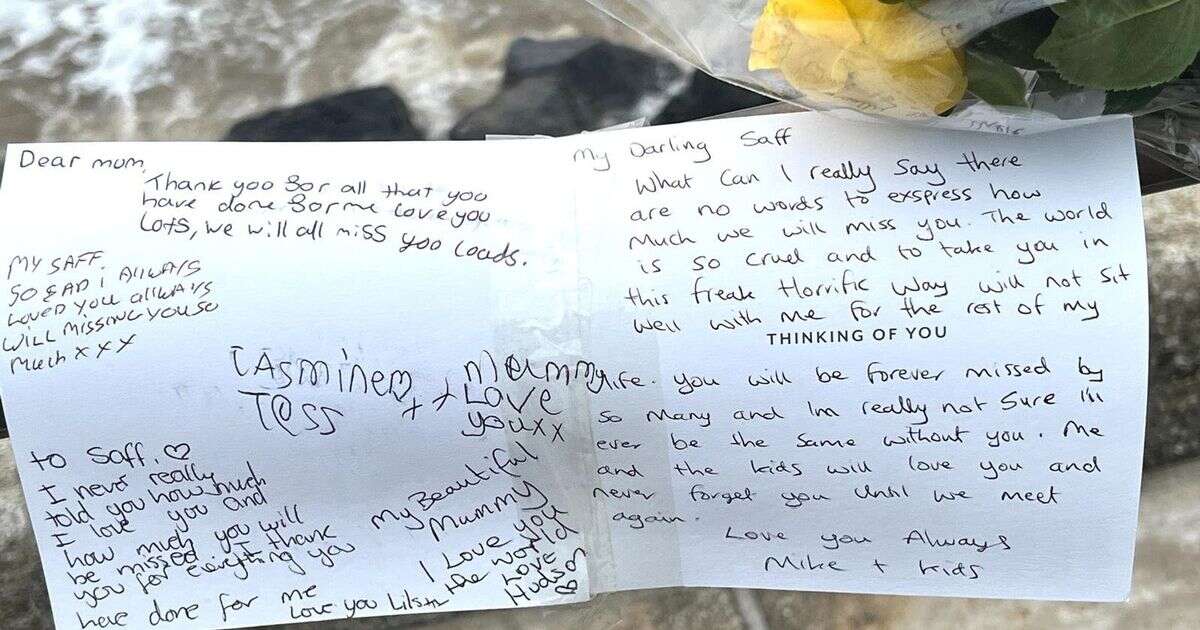 Dear mum,
Thank you for all that you
have done for me love you
Lots, we will all miss you loads.
MY SAFF
SO SAD i AllWAYS
LOVED YOU AllWAYS
WILL MISSING YOU SO
Much xxx
JASMINE ♡ + +
T@SS
Mammy
Love
you xx
to Saff. ♡
I never really
told you how much
I love you and
how much you will
be missed. I thank
you for everything you
have done for me
Love you
My Beautiful
Mummy
I Love you
the world
Love
Hudson
♡
My Darling Saff
What Can I really Say there
are no words to exspress how
Much we will miss you. The world
is so cruel and to take you in
this freak Horrific way will not sit
well with me for the rest of my
THINKING OF YOU
life. you will be forever missed by
so many and Im really not sure I'll
ever be the same without you. Me
and the kids will love you and
never forget you Until we meet
again.
Love you Always
Mike + kids